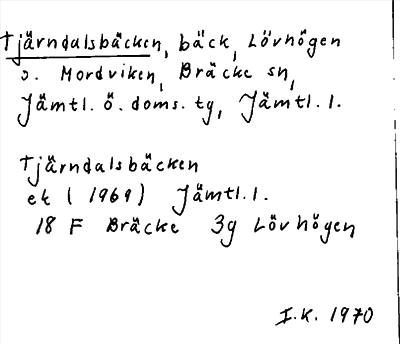 Tjärndalsbäcken, bäck, Lövhögen
o. Mordviken, Bräcke sn,
Jämtl. ö. doms. tg, Jämtl. l.
Tjärndalsbäcken
ek (1969) Jämtl. l.
18 F Bräcke 3g Lövhögen
I.K. 1970